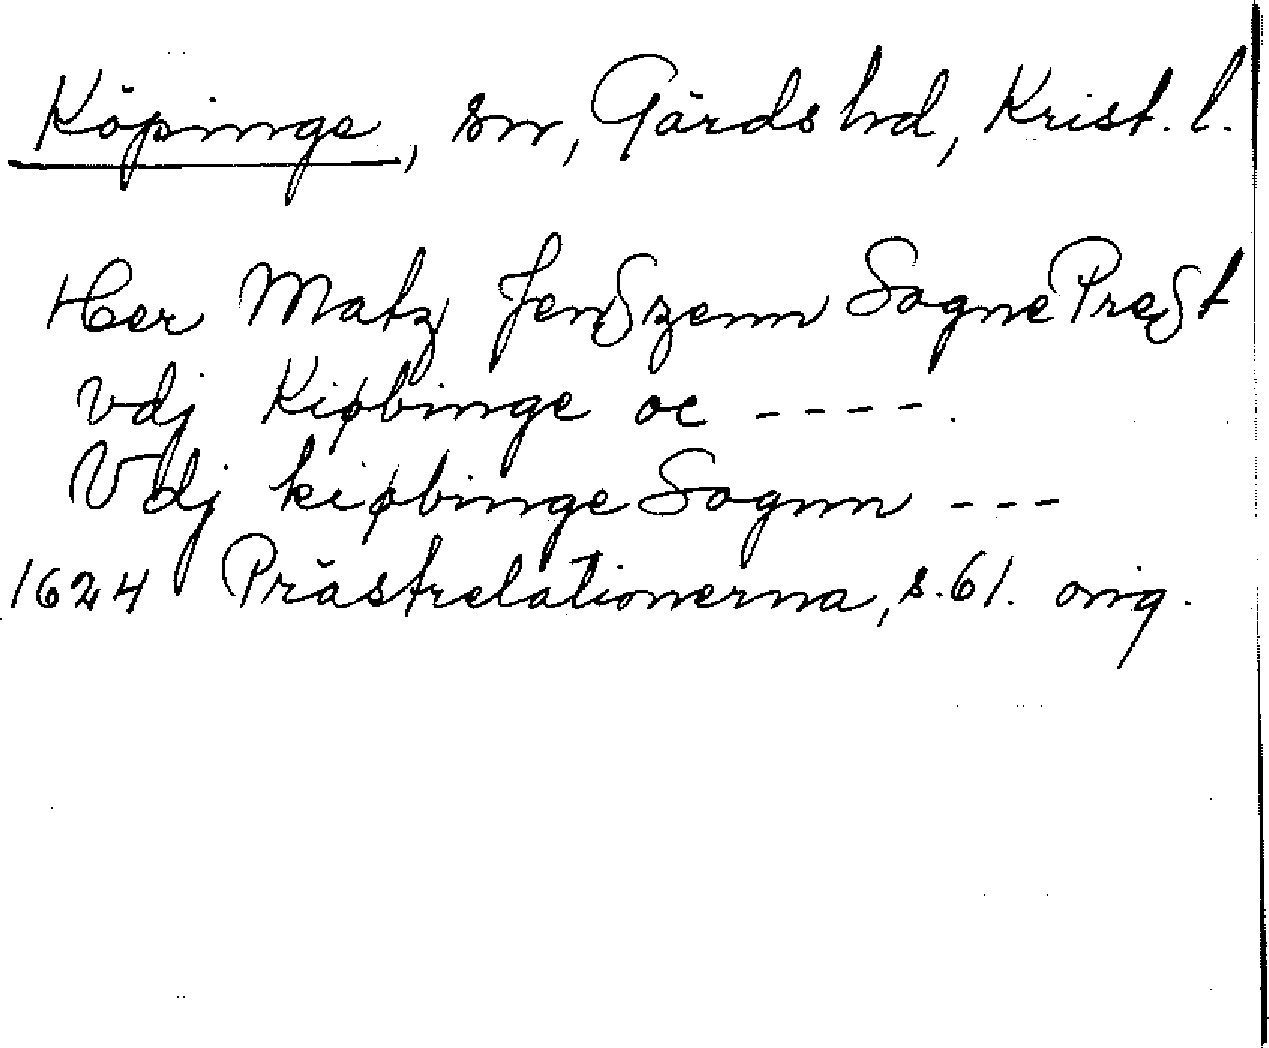 Köpinge, sn, Gärds hd, Krist. l.
Her Matz JenSzenn Sogne PreSt
vdj Kiøbinge oc ----.
Vdj kiøbinge Sognn ---
1624 Prästrelationerna, s. 61. orig.